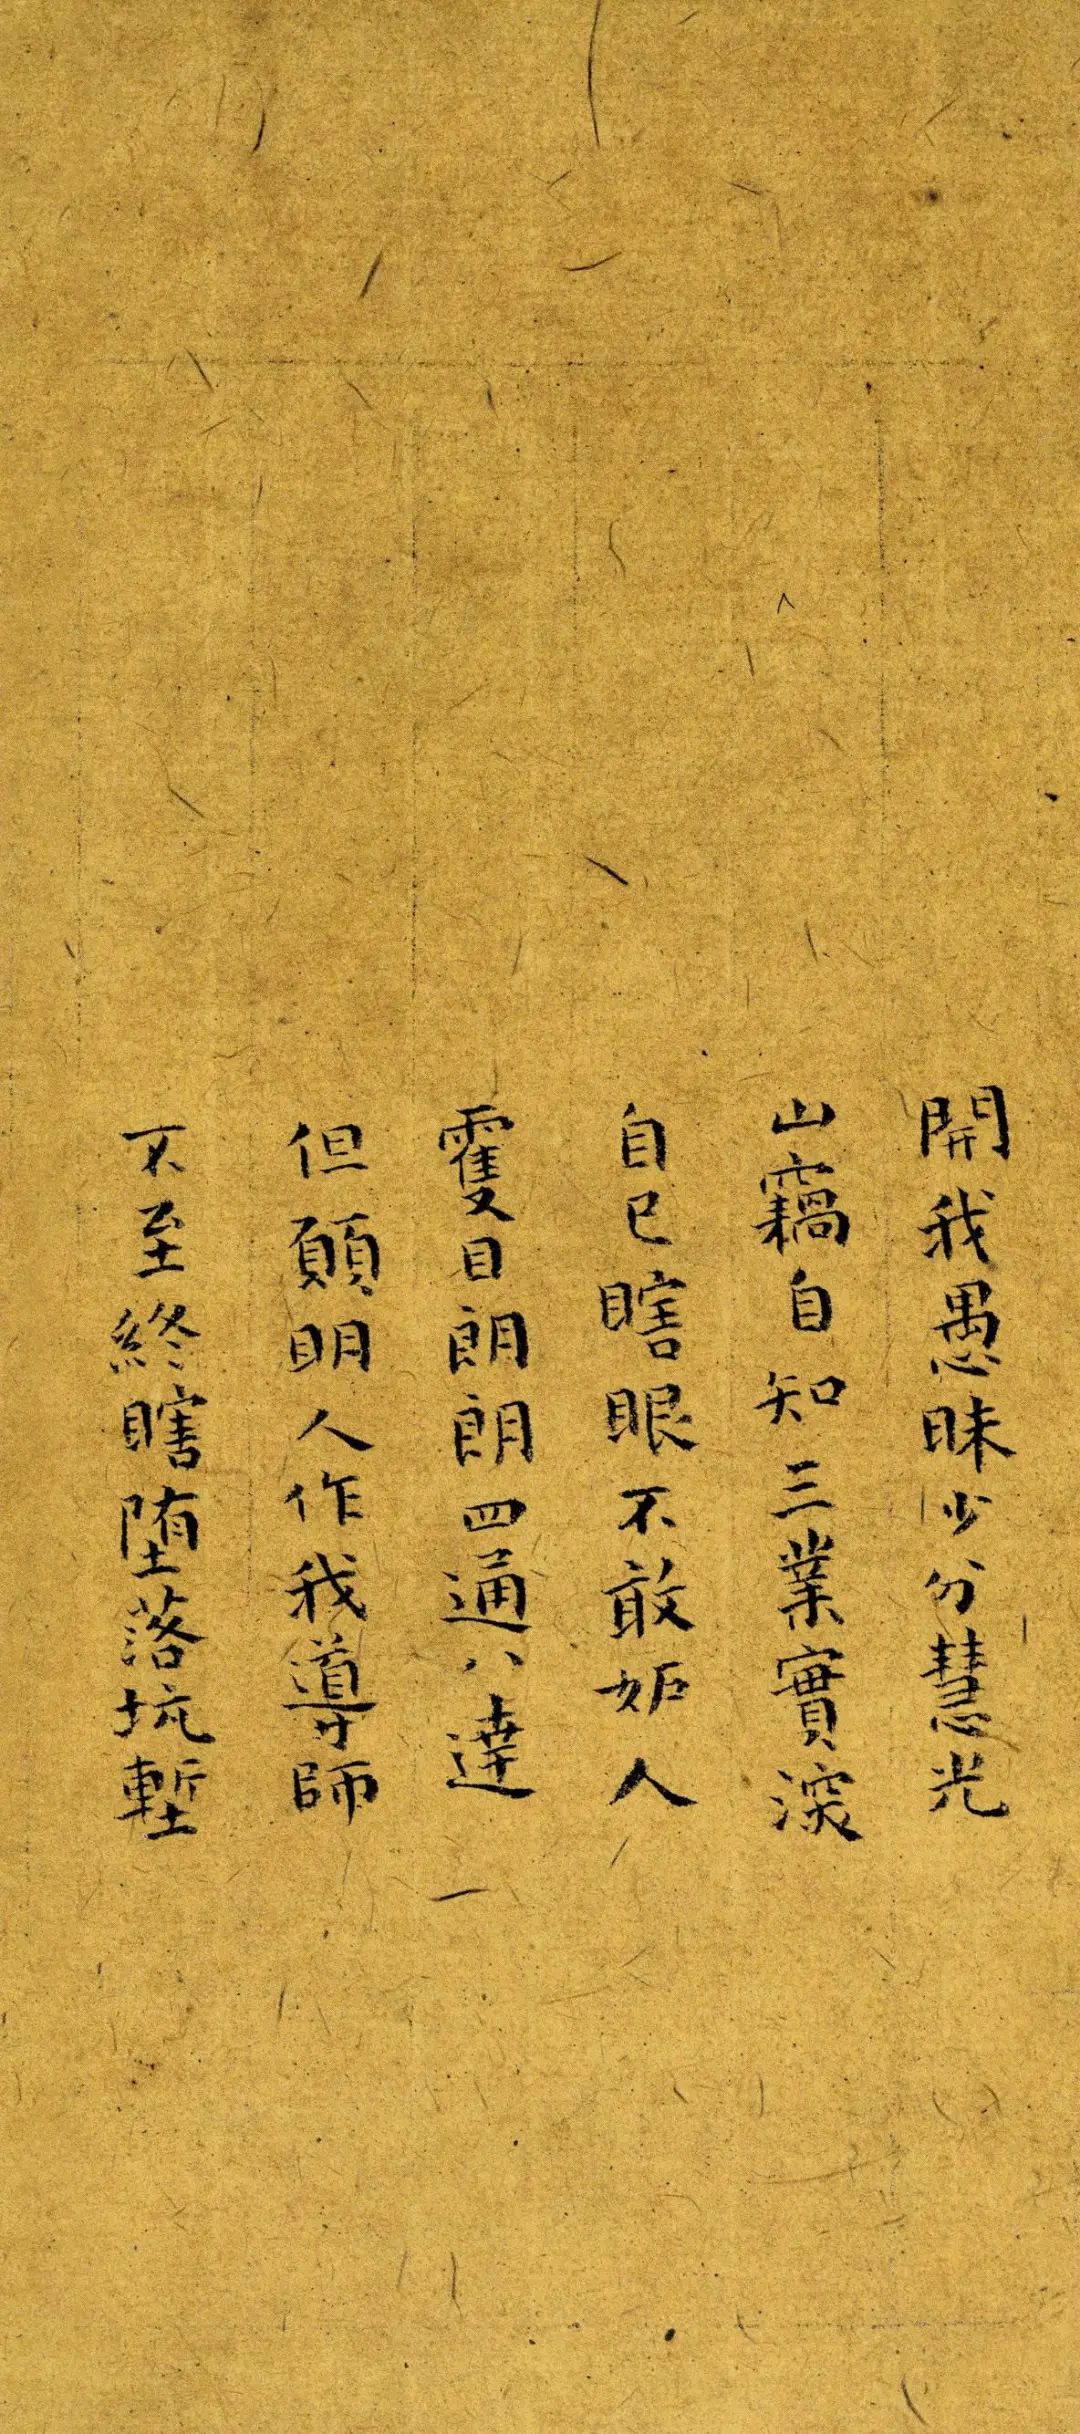 開我愚昧少分慧光
山竊自知三業實深
自己瞎眼不敢妬人
䨥目朗朗四通八達
但願明人作我導師
不至終瞎堕落坑塹